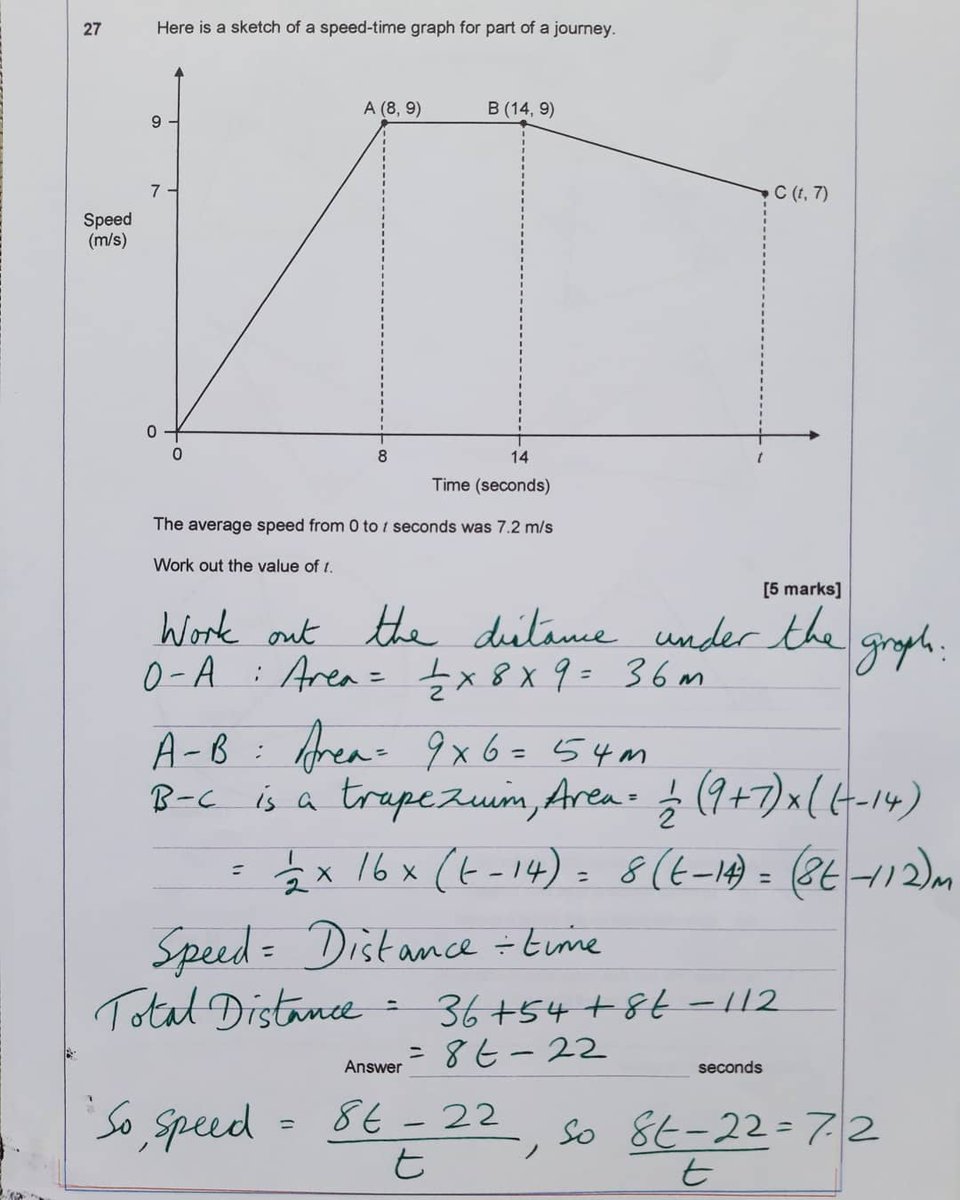 27 Here is a sketch of a speed-time graph for part of a journey.
A (8, 9) B (14, 9)
9
7
C (t, 7)
Speed
(m/s)
0
0 8 14 t
Time (seconds)
The average speed from 0 to t seconds was 7.2 m/s
Work out the value of t.
[5 marks]
Work out the distance under the graph:
O-A : Area = 1/2 x 8 x 9 = 36 m
A-B : Area = 9 x 6 = 54 m
B-C is a trapezuim, Area = 1/2 (9+7) x (t-14)
= 1/2 x 16 x (t-14) = 8(t-14) = (8t-112)m
Speed = Distance ÷ time
Total Distance = 36 + 54 + 8t - 112
= 8t - 22
Answer seconds
So, speed = (8t - 22)/t, so (8t-22)/t = 7.2